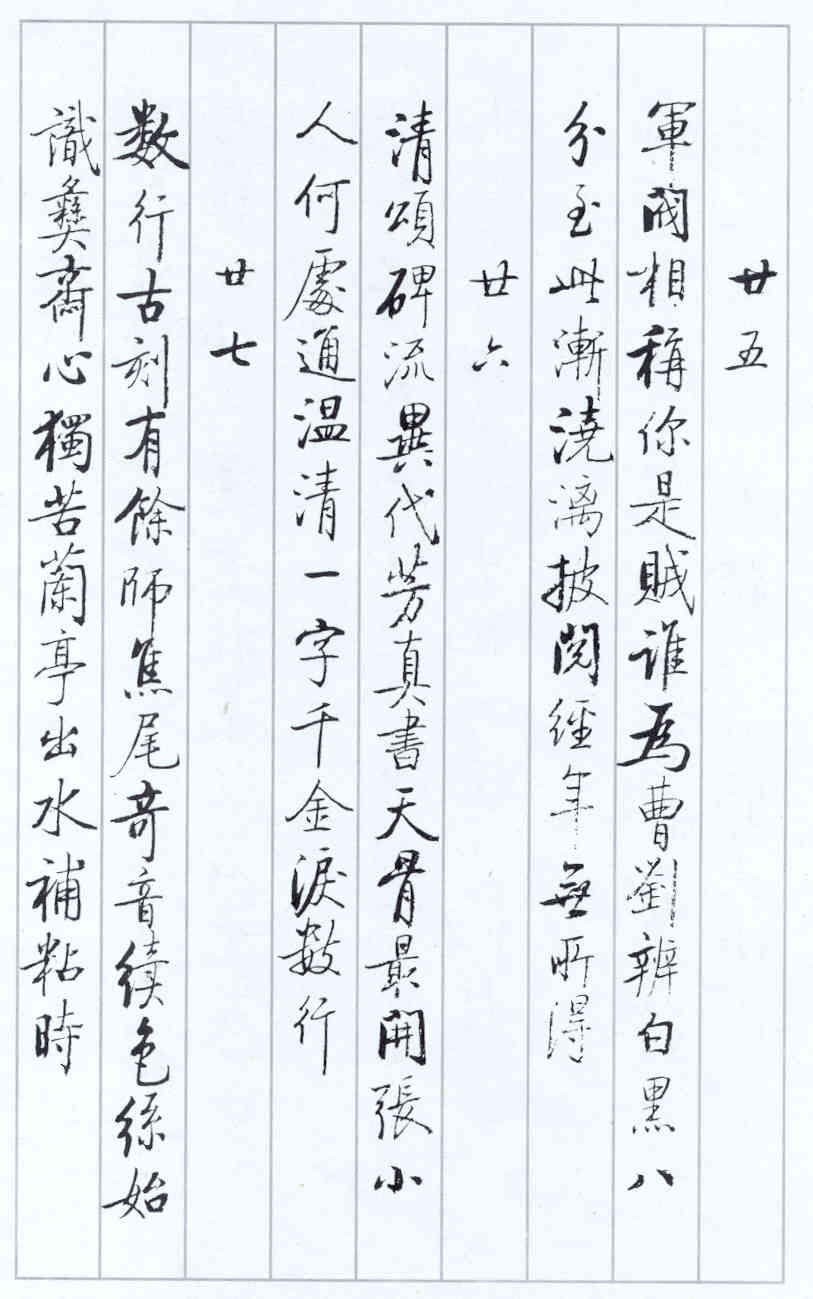 廿五
軍閥相稱你是賊誰為曹劉辨白黑八
分至此漸澆漓披閱經年無所得
廿六
清頌碑流異代芳真書天骨最開張小
人何處通温清一字千金淚數行
廿七
数行古刻有餘師焦尾奇音續色絲始
識彝齋心獨苦蘭亭出水補粘時